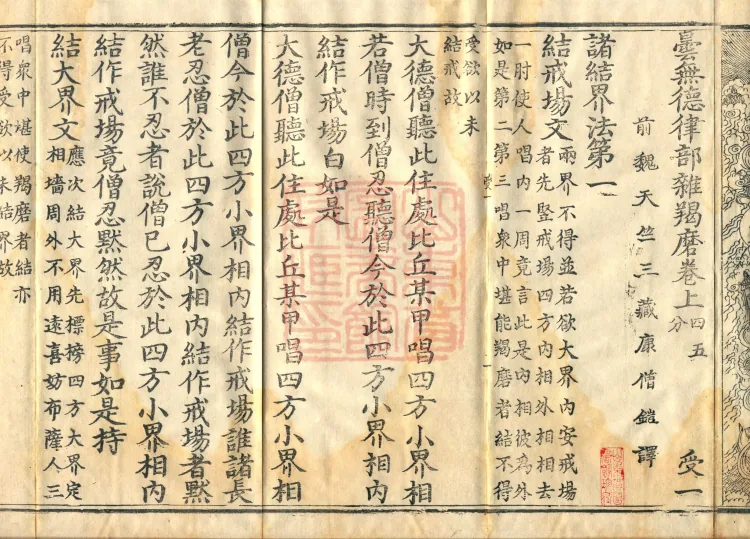 曇無德律部雜羯磨卷上 四五分 受一
前魏天竺三藏康僧鎧譯
諸結界法第一
結戒場文 兩界不得並若欲大界內安戒場
者先竪戒場四方內相外相相去
一肘使人唱內一周竟言此是內相彼為外
如是第二第三唱衆中堪能羯磨者結不得
受欲以未
結戒故
大德僧聽此住處比丘某甲唱四方小界相
若僧時到僧忍聽僧今於此四方小界相內
結作戒場白如是
大德僧聽此住處比丘某甲唱四方小界相
僧今於此四方小界相內結作戒場誰諸長
老忍僧於此四方小界相內結作戒場者默
然誰不忍者說僧已忍於此四方小界相內
結作戒場竟僧忍默然故是事如是持
結大界文 應次結大界先標榜四方大界定
相墻周外不用遠喜妨布薩人三
唱衆中堪使羯磨者結亦
不得受欲以未結界故